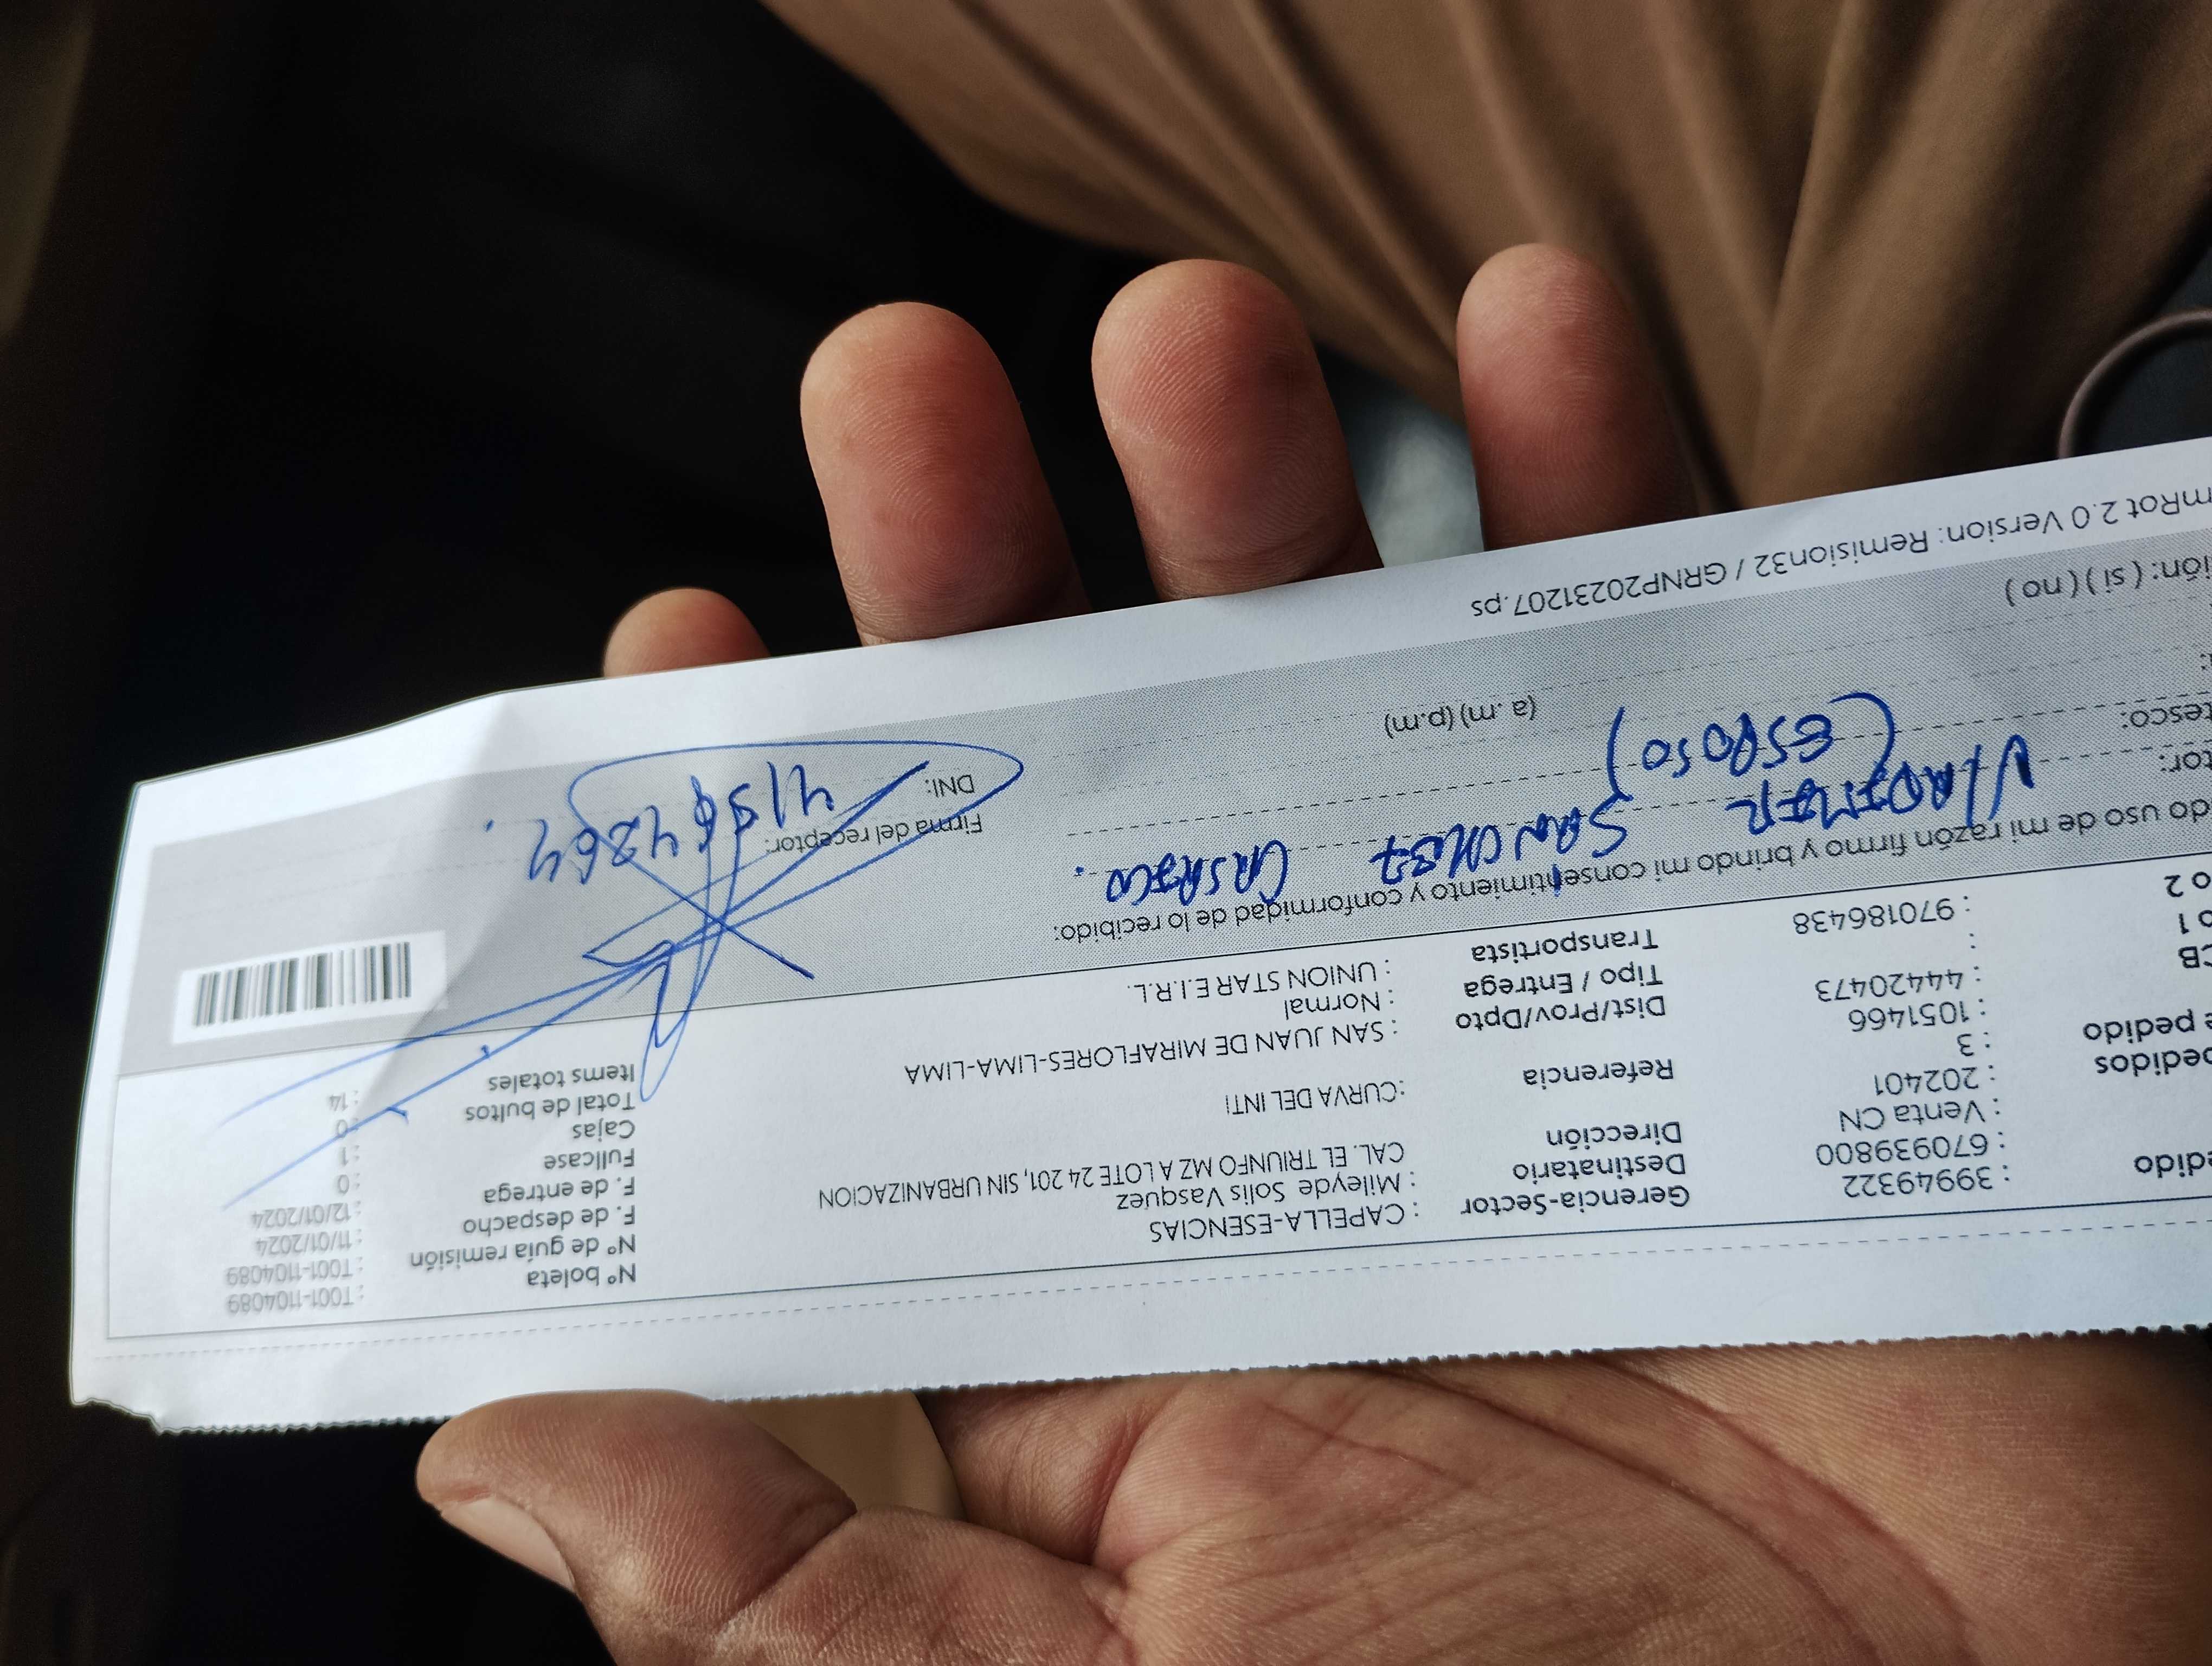 edido : 39949322
: 670939800
: Venta CN
edidos : 202401
e pedido : 3
: 1051466
CB : 44420473
o 1 :
o 2 : 970186438
Gerencia-Sector : CAPELLA-ESENCIAS
Destinatario : Mileyde Solis Vasquez
Dirección CAL. EL TRIUNFO MZ A LOTE 24 201, SIN URBANIZACION
Referencia :CURVA DEL INTI
Dist/Prov/Dpto : SAN JUAN DE MIRAFLORES-LIMA-LIMA
Tipo / Entrega : Normal
Transportista : UNION STAR E.I.R.L.
Nº boleta : T001-1104089
Nº de guía remisión : T001-1104089
F. de despacho : 11/01/2024
F. de entrega : 12/01/2024
Fullcase : 0
Cajas : 1
Total de bultos : 0
Items totales : 14
do uso de mi razón firmo y brindo mi consentimiento y conformidad de lo recibido:
tor: SANCHEZ
tesco: (ESPOSO)
(a .m) (p.m)
Firma del receptor:
DNI:
ión: ( si ) ( no )
mRot 2.0 Version: Remision32 / GRNP20231207.ps